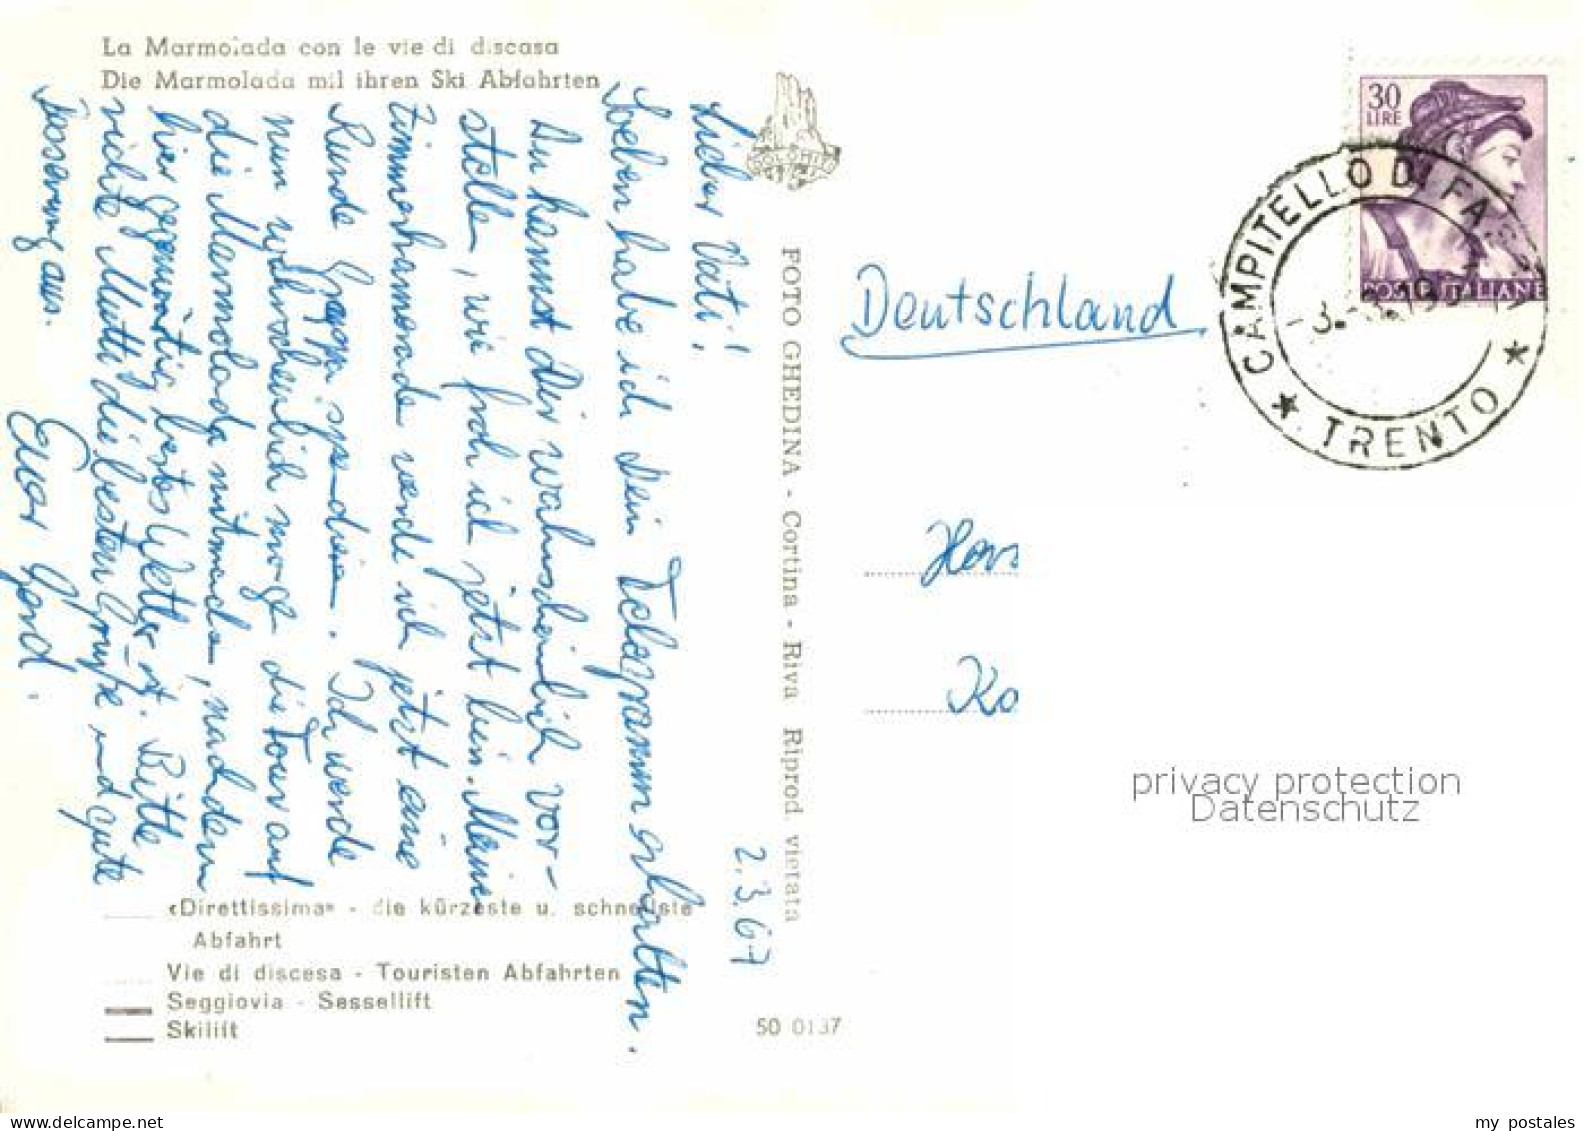 La Marmolada con le vie di discasa
Die Marmolada mil ihren Ski Abfahrten
DOLOMITI
30
LIRE
POSTE ITALIANE
CAMPITELLO DI FASSA
TRENTO
-3.
2.3.67
Lieber Vati!
Soeben habe ich Dein Telegramm erhalten.
Du kannst Dir wahrscheinlich vor-
stellen, wie froh ich jetzt bin. Meine
Zimmerkammeraden werde ich jetzt eine
Runde
Ich werde
nun wahrscheinlich morge die Tour auf
die Marmolada mitmachen, nachdem
hier gegenwärtig bestes Wetter ist. Bitte
richte Mutti die besten Grüße und gute
Besserung aus.
Euer Gerd.
Deutschland
Hors
Ko
FOTO GHEDINA - Cortina - Riva Riprod. vietata
privacy protection
Datenschutz
«Direttissima» - die kürzeste u. schnellste
Abfahrt
Vie di discesa - Touristen Abfahrten
Seggiovia - Sessellift
Skilift
50 0137
my postales